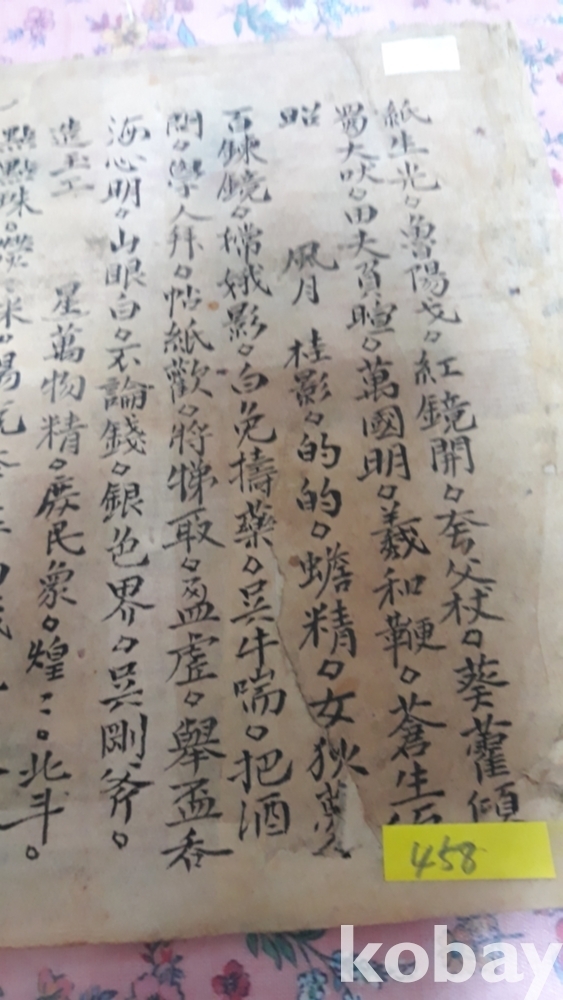 紙生光。魯陽戈。紅鏡開。夸父杖。葵藿傾
蜀犬吠。田夫負暄。萬國明。羲和鞭。蒼生
昭　風月　桂影。的的。蟾精。女狄
百鍊鏡。嫦娥影。白兔擣藥。吳牛喘。把酒
問。學人拜。帖紙歡。將梯取。盈虛。舉盃吞
海心明。山眼白。不論錢。銀色界。吳剛斧。
造玉工　星萬物精。庶民象。煌〻。北斗。
點點珠。
458
kobay